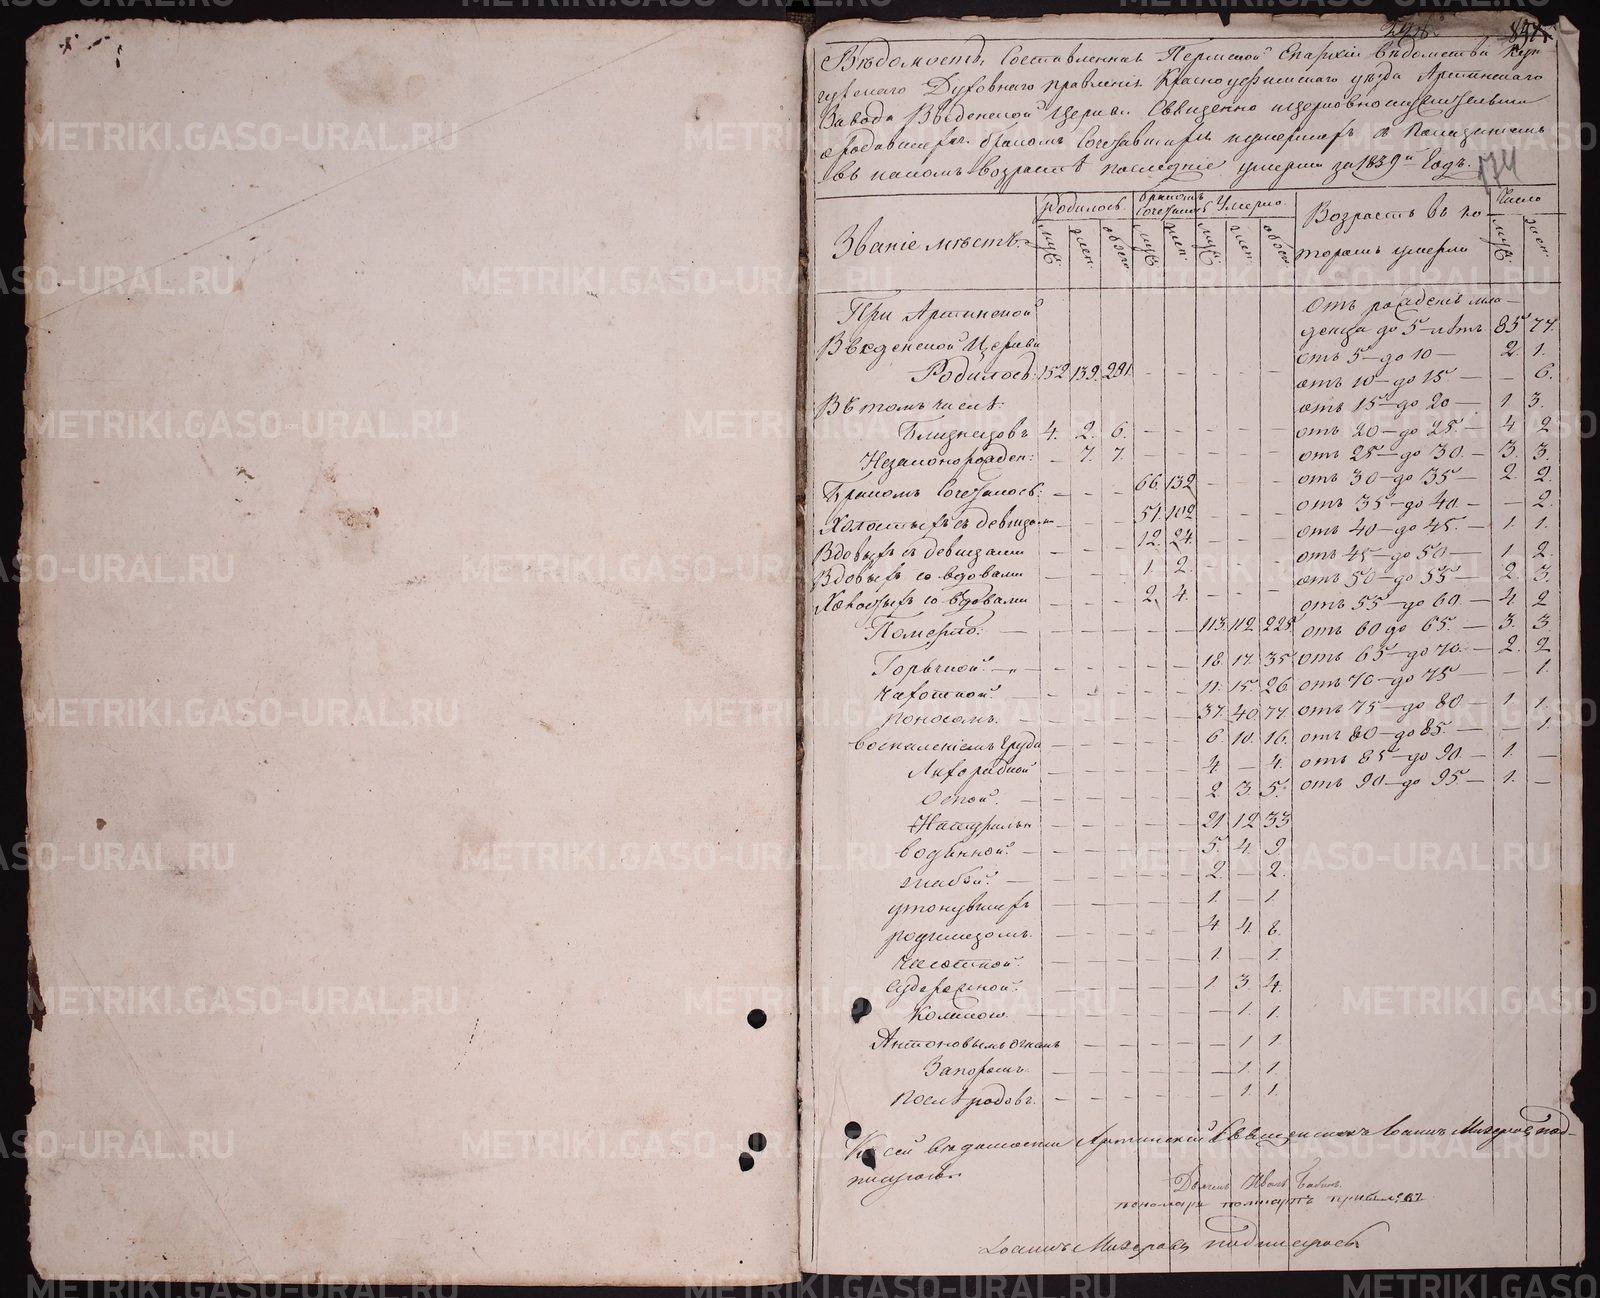 Вѣдомость, Составленная Пермской Епархіи вѣдомства Кун
гурскаго Духовнаго правленія Красноуфимскаго уѣзда Артинскаго
Завода Введенской Церкви Священно и церковнослужительми
о родившихся бракомъ Сочетавшихся и умершихъ съ Показаніемъ
въ какомъ возрастѣ последніе умерли за 1839й Годъ.
174
Званіе мѣстъ.
Родилось.
Бракомъ Сочеталось
Умерло.
Возрастъ въ ко-
торомъ умерло
Число
муж. жен. обоего муж. жен. муж. жен. обоего муж. жен.
При Артинской
Введенской Церкви
Родилось: 152. 139. 291. — — — — —
Въ томъ числѣ:
Близнецовъ 4. 2. 6. — — — — —
Незаконорожден: — 7. 7. — — — — —
Бракомъ Сочеталось: — — — 66. 132 — — —
Холостыхъ съ девицами — — — 51. 102 — — —
Вдовыхъ съ девицами — — — 12. 24. — — —
Вдовыхъ со вдовами — — — 1. 2. — — —
Холостыхъ со вдовами — — — 2. 4. — — —
Померло: — — — — — — 113. 112. 225.
Горячкой. — — — — — 18. 17. 35.
Чахоткой — — — — — 11. 15. 26.
Поносомъ. — — — — — 37. 40. 77.
воспаленіемъ груди — — — — — 6. 10. 16.
Лихорадкой — — — — — 4. — 4.
Оспой. — — — — — 2. 3. 5.
Натуральн — — — — — 21 12 33
водянкой. — — — — — 5. 4. 9.
жабой. — — — — — 2. — 2.
утонувшихъ — — — — — 1. — 1.
родимцомъ. — — — — — 4 4. 8.
чесоткой. — — — — — 1. — 1.
Судорожной. — — — — — 1 3. 4.
— — — — — — 1. 1.
Антоновымъ огнемъ — — — — — — 1 1.
Запоромъ. — — — — — — 1. 1.
Послѣ родовъ. — — — — — — 1. 1.
Отъ рожденія мла-
денца до 5 лѣтъ 85. 77.
отъ 5 — до 10 — 2. 1.
отъ 10 — до 15 — — 6.
отъ 15 — до 20 — 1. 3.
отъ 20 — до 25. — 4 2
отъ 25 — до 30. — 3. 3.
отъ 30 — до 35 — 2. 2.
отъ 35 — до 40. — — 2.
отъ 40 — до 45. — 1. 1.
отъ 45 — до 50 — 1. 2.
отъ 50 — до 55 — 2. 3.
отъ 55 — до 60. — 4. 2
отъ 60 до 65. — 3. 3
отъ 65 — до 70. — 2. 2
отъ 70 — до 75 — — 1.
отъ 75 — до 80 — 1. 1.
отъ 80 — до 85. — — 1.
отъ 85 — до 90. — 1. —
отъ 90 — до 95. — 1. —
Къ сей ведомости Артинской Священникъ Іоаннъ под-
писуюсь.
Дьячекъ Иванъ
пономарь
Іоаннъ подписуюсь
METRIKI.GASO-URAL.RU